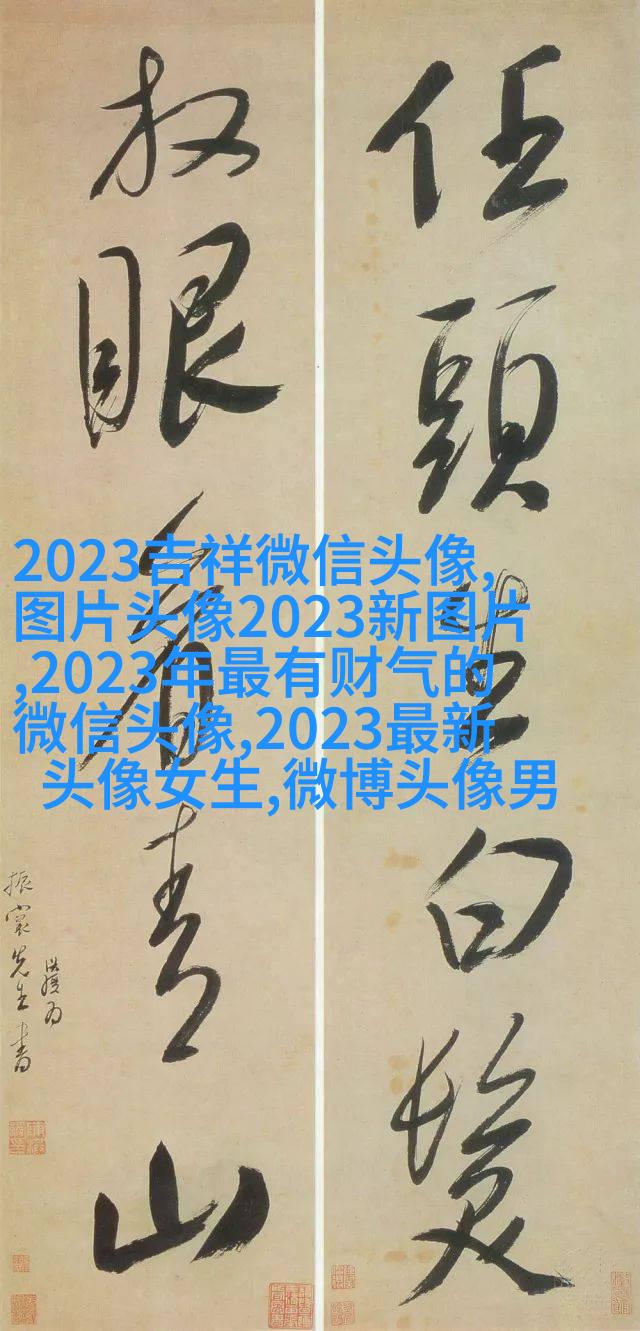 任頭生白髮
放眼看青山
振裳先生書
2023吉祥微信头像,
图片头像2023新图片
,2023年最有财气的
微信头像,2023最新
头像女生,微博头像男